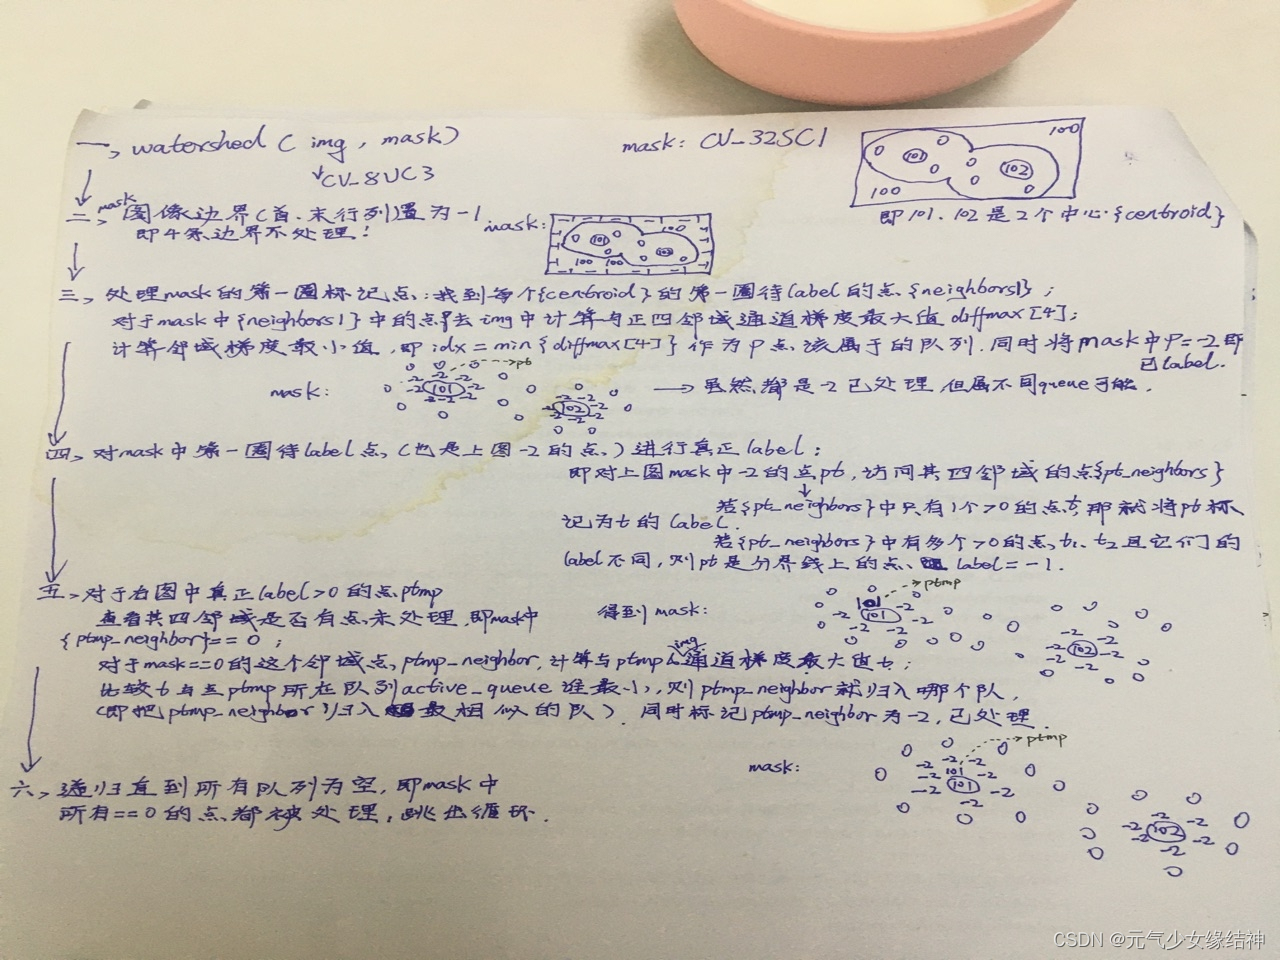 一、watershed ( img , mask )
mask: CV_32SC1
CV_8UC3
100
0
101
0
0
102
100
即101、102是2个中心{centroid}
mask
二、图像边界(首、末行列)置为-1
即4条边界不处理!
mask:
101
102
100
三、处理mask的第一圈标记点:找到每个{centroid}的第一圈待label的点{neighbors1};
对于mask中{neighbors1}中的点P去img中计算与正四邻域通道梯度最大值diffmax[4];
计算邻域梯度最小值,即idx=min{diffmax[4]}作为P点该属于的队列.同时将mask中P=-2即
已label.
pt
mask:
101
102
→虽然都是-2已处理,但属不同queue可能.
四、对mask中第一圈待label点,(也是上图-2的点)进行真正label;
即对上图mask中-2的点pt,访问其四邻域的点{pt_neighbors}
若{pt_neighbors}中只有1个>0的点t,那就将pt标
记为t的label.
若{pt_neighbors}中有多个>0的点,t1、t2且它们的
label不同,则pt是分界线上的点、label=-1.
五、对于右图中真正label>0的点ptmp
查看其四邻域是否有点未处理,即mask中
{ptmp_neighbor}==0;
得到mask:
ptmp
101
101
102
img
对于mask==0的这个邻域点,ptmp_neighbor,计算与ptmp的通道梯度最大值t;
比较t与ptmp所在队列active_queue谁最小,则ptmp_neighbor就归入哪个队.
(即把ptmp_neighbor归入最相似的队).同时标记ptmp_neighbor为-2,已处理.
mask:
ptmp
101
101
102
六、递归直到所有队列为空,即mask中
所有==0的点都被处理,跳出循环.
CSDN @元气少女缘结神